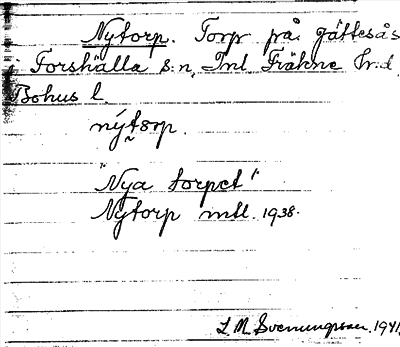 Nytorp. Torp på gåttesås
Forshälla s:n, Inl. Fräkne hr:d,
Bohus l.
nýtorp.
"Nya torpet"
Nytorp mtl. 1938.
L. M. Svenungsson. 1941.